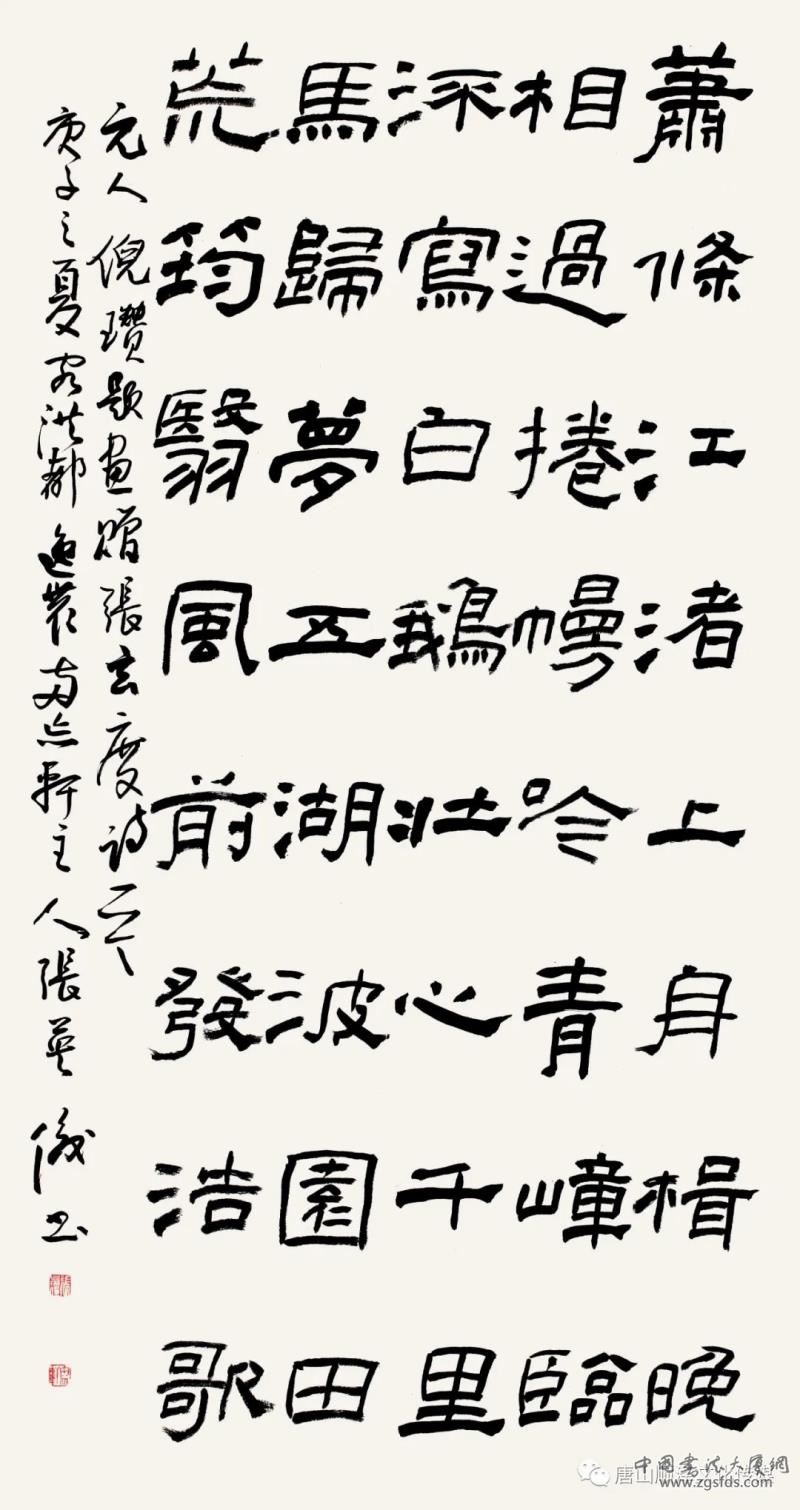 蕭條江渚上舟楫晚
相過捲幔吟青嶂臨
流寫白鵝壯心千里
馬歸夢五湖波園田
荒筠翳風前發浩歌
元人倪瓚題畫贈張玄度詩
庚子之夏客洪都逸農兩忘軒主人張英書
唐山
中國書法大廈網
www.zgsfds.com